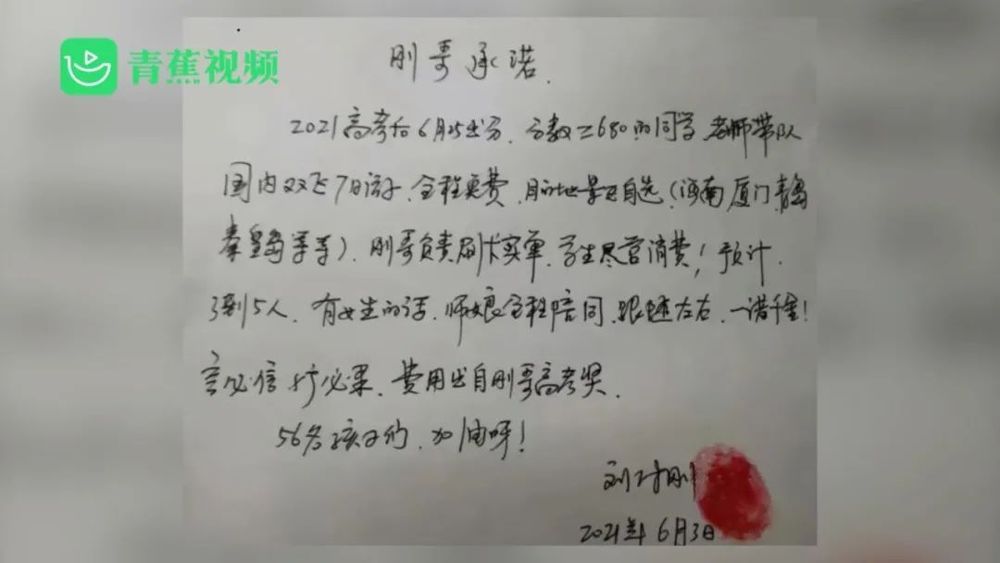 青蕉视频
刚哥承诺.
2021高考后6月25出分,分数≥680的同学,老师带队
国内双飞7日游,全程免费,目的地景区自选(海南,厦门,青岛
秦皇岛等等).刚哥负责刷卡买单,学生尽管消费!预计.
3到5人.有女生的话,师娘全程陪同,跟随左右,一诺千金!
言必信行必果.费用出自刚哥高考奖.
56名孩子们,加油呀!
刚
2021年6月3日